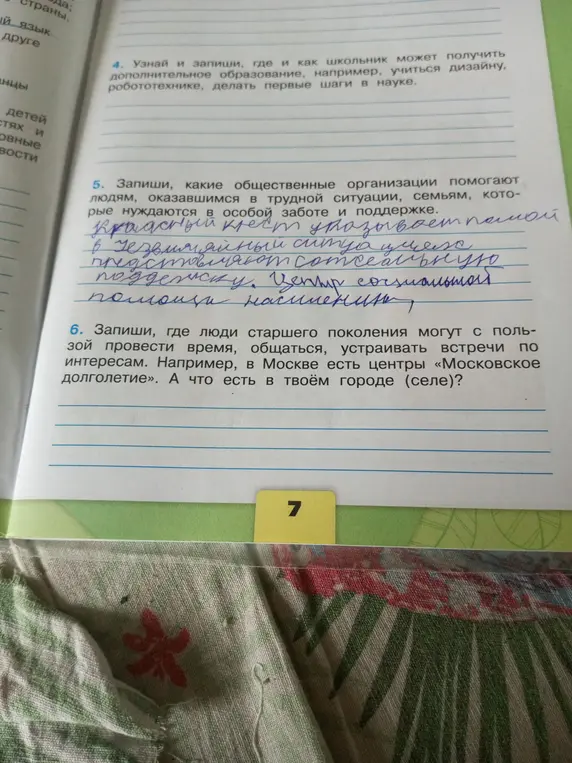 ода;
страны,
й язык
друге
нцы
детей
стях и
овные
вости
4. Узнай и запиши, где и как школьник может получить
дополнительное образование, например, учиться дизайну,
робототехнике, делать первые шаги в науке.
5. Запиши, какие общественные организации помогают
людям, оказавшимся в трудной ситуации, семьям, кото-
рые нуждаются в особой заботе и поддержке.
Красный крест указывает помощ
в ситуациях
поддержку. Центр социальной
помощи насиления,
6. Запиши, где люди старшего поколения могут с поль-
зой провести время, общаться, устраивать встречи по
интересам. Например, в Москве есть центры «Московское
долголетие». А что есть в твоём городе (селе)?
7